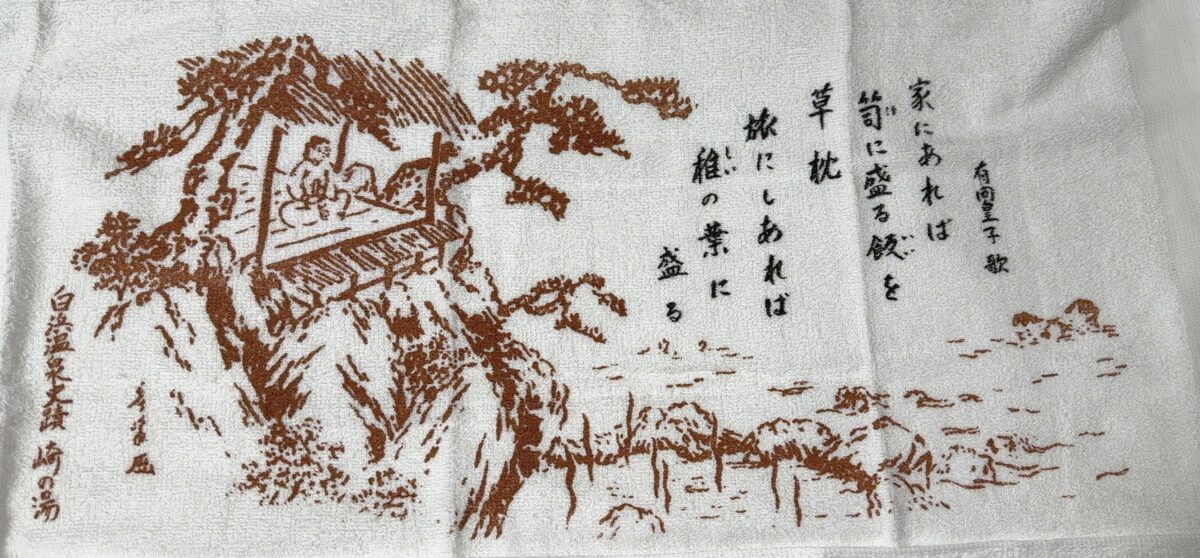 有間皇子歌
家にあれば
笥に盛る飯を
け
いい
草枕
旅にしあれば
椎の葉に
しい
盛る
白浜温泉史蹟 崎の湯